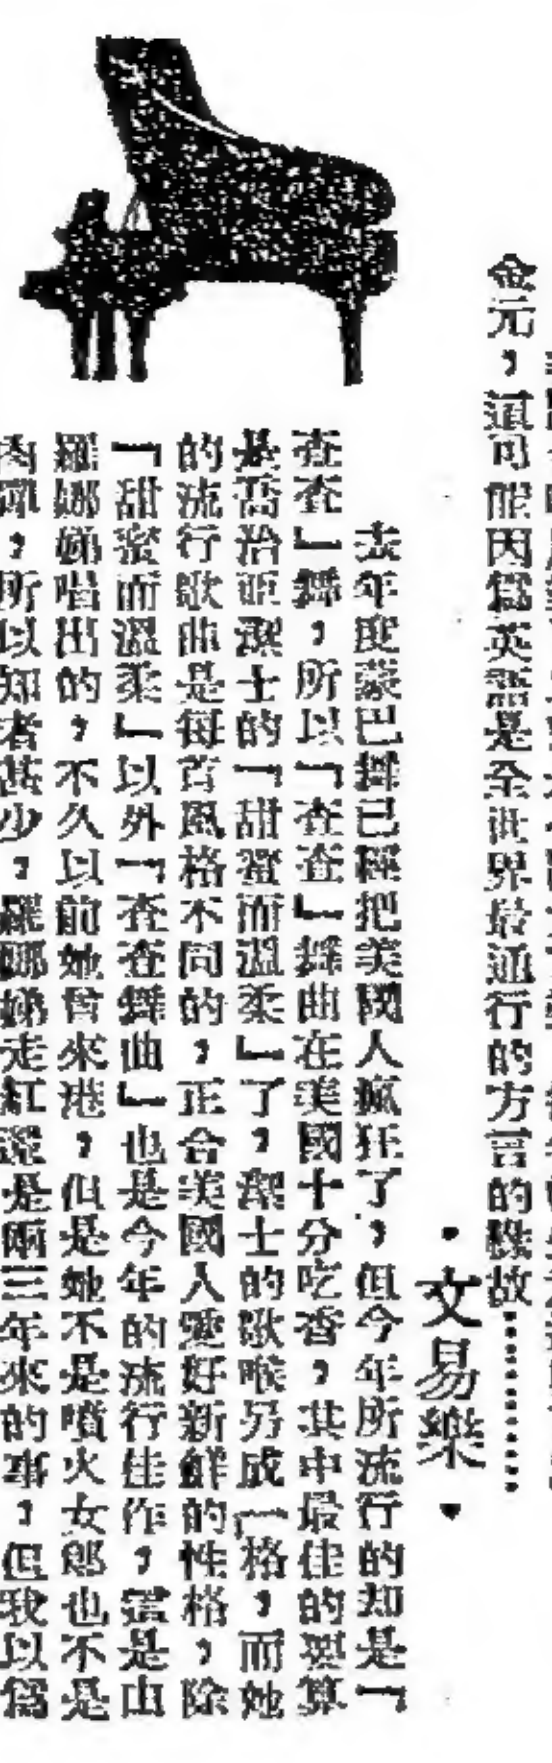 金元，這可能因為英語是全世界最通行的方言的緣故⋯⋯⋯
·文易樂·
去年度蒙巴舞已經把美國人瘋狂了，但今年所流行的却是「
查查」舞，所以「查查」舞曲在美國十分吃香，其中最佳的要算
是喬治亞潔士的「甜蜜而溫柔」了，潔士的歌喉另成一格，而她
的流行歌曲是每首風格不同的，正合美國人愛好新鮮的性格，除
「甜蜜而溫柔」以外「查查舞曲」也是今年的流行佳作，這是由
羅娜娣唱出的，不久以前她曾來港，但是她不是噴火女郎也不是
肉彈，所以知者甚少，羅娜娣走紅還是兩三年來的事，但我以為